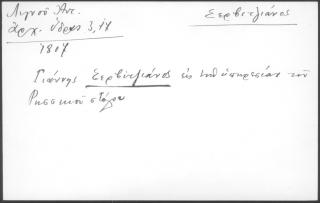 Λιγνοῦ Ἀντ.
Ἀρχ. Ὕδρας 3, 17
1807
Σερβιτζιάνος
Γιάννης Σερβιτζιάνος εἰς τὴν ὑπηρεσίαν τοῦ
Ρωσσικοῦ στόλου